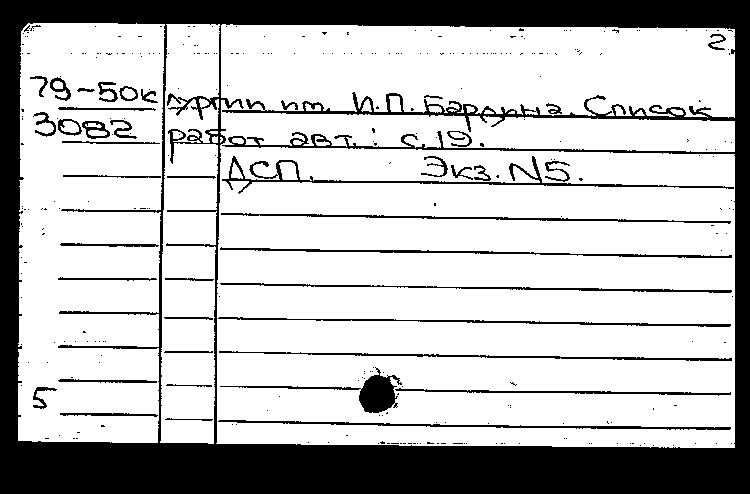 2
79-50к лургии им. И.П. Бардина. Список
3082 работ авт.: с.19.
ДСП. Экз. N5.
5